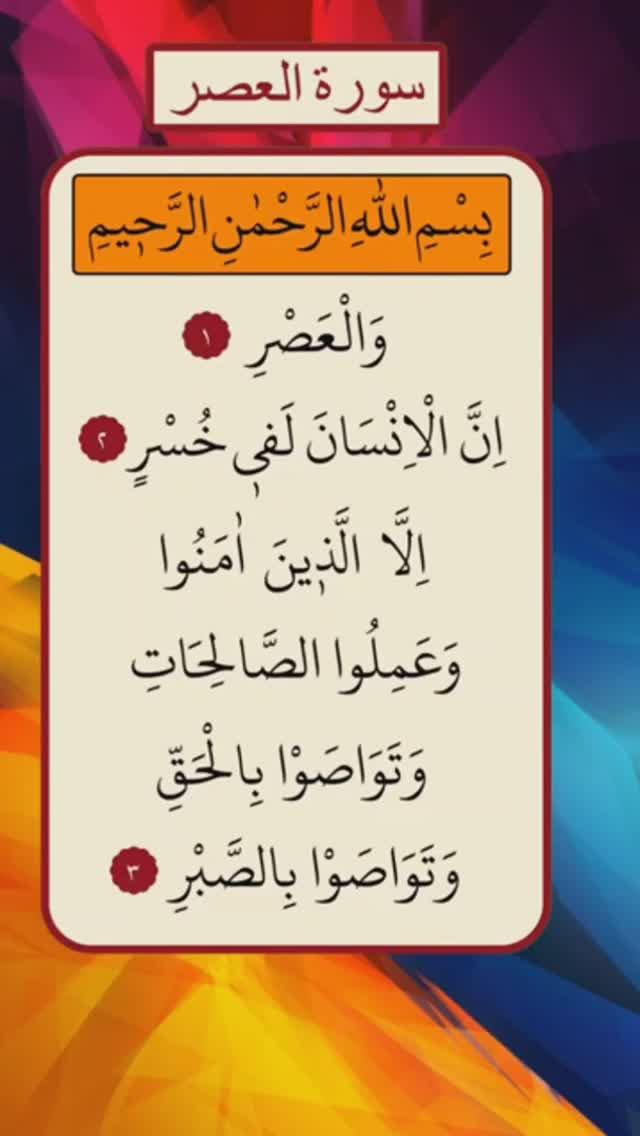 سورة العصر
بِسْمِ اللّٰهِ الرَّحْمٰنِ الرَّحٖيمِ
وَالْعَصْرِ ١
اِنَّ الْاِنْسَانَ لَفٖى خُسْرٍ ٢
اِلَّا الَّذٖينَ اٰمَنُوا
وَعَمِلُوا الصَّالِحَاتِ
وَتَوَاصَوْا بِالْحَقِّ
وَتَوَاصَوْا بِالصَّبْرِ ٣